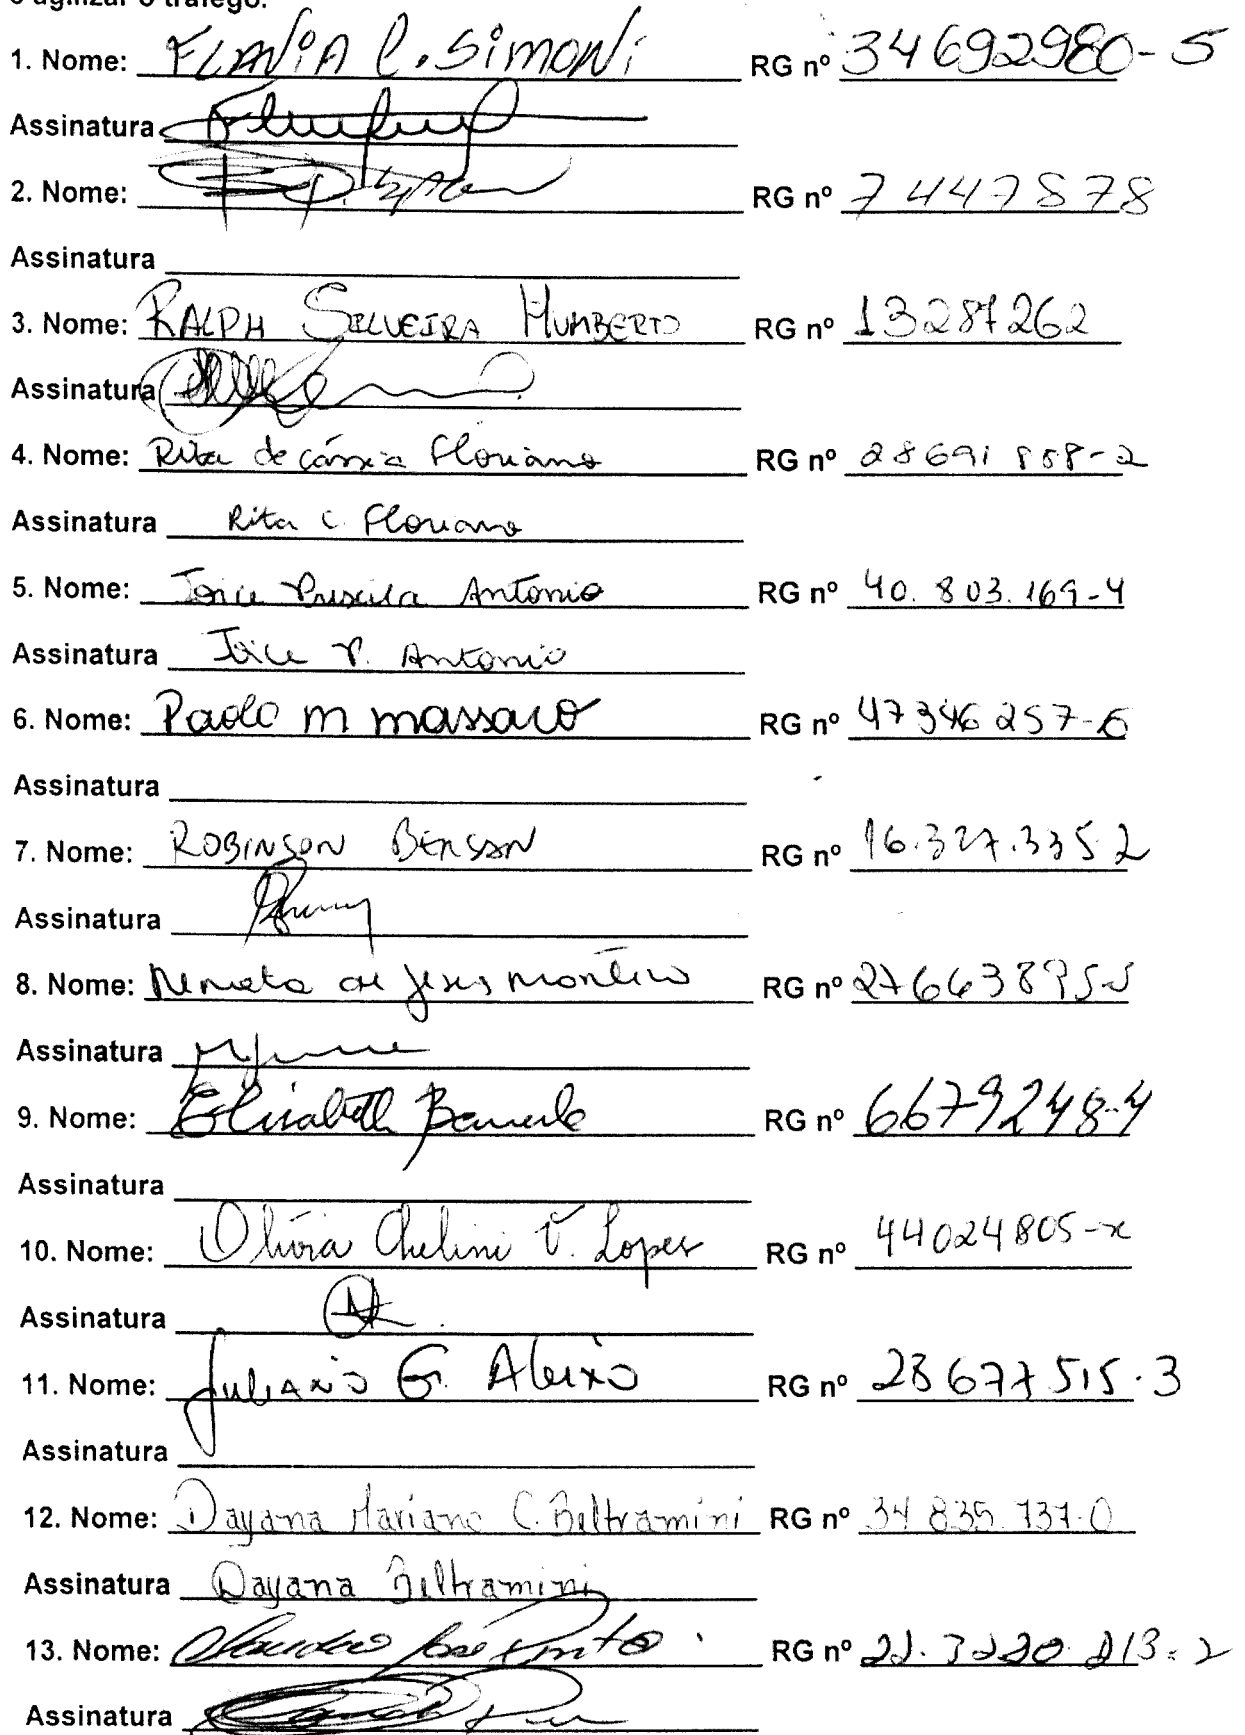 e agilizar o tráfego.
1. Nome: FLAVIA C. SIMONI RG nº 34692980-5
Assinatura
2. Nome: RG nº 7447878
Assinatura
3. Nome: RALPH SILVEIRA HUMBERTO RG nº 13287262
Assinatura
4. Nome: Rita de cássia Floriano RG nº 28691858-2
Assinatura Rita C. Floriano
5. Nome: Joice Priscila Antonio RG nº 40.803.169-4
Assinatura Joice P. Antonio
6. Nome: Paolo m massaro RG nº 47346257-6
Assinatura
7. Nome: ROBINSON BERSAN RG nº 16.327.335.2
Assinatura
8. Nome: Renata de Jesus monteiro RG nº 27663895-5
Assinatura
9. Nome: Elisabeth RG nº 6679248-4
Assinatura
10. Nome: Olívia Chelini V. Lopes RG nº 44024805-x
Assinatura
11. Nome: JULIANO G. Aleixo RG nº 28677515.3
Assinatura
12. Nome: Dayana Mariano C. Beltramini RG nº 34 835 737-0
Assinatura Dayana Beltramini
13. Nome: Claudio José Pinto RG nº
Assinatura